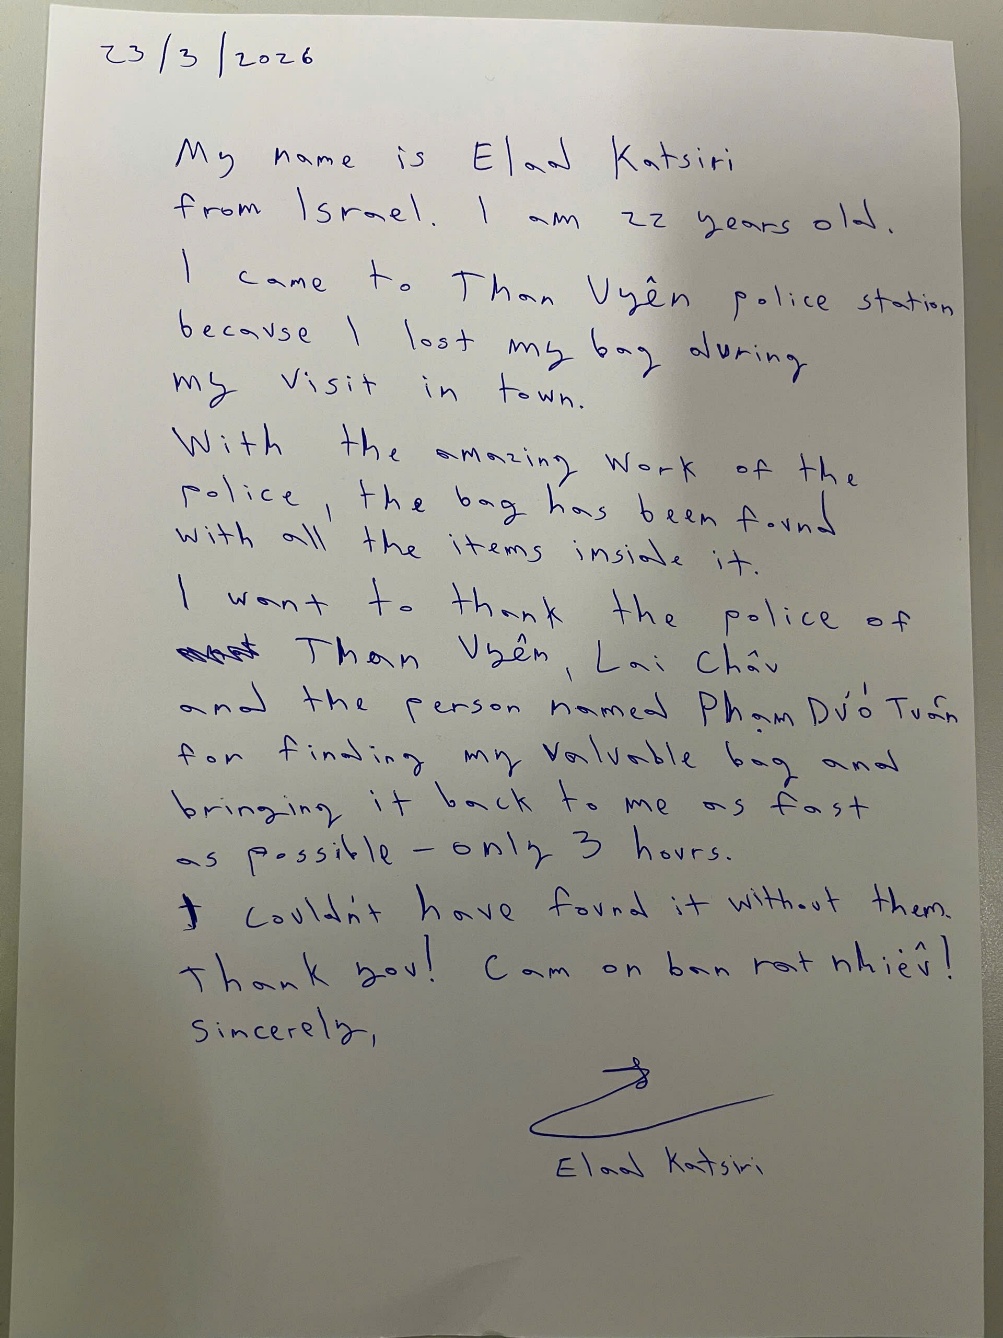 23/3/2026
My name is Elad Katsiri
from Israel. I am 22 years old.
I came to Than Uyên police station
because I lost my bag during
my visit in town.
With the amazing work of the
police, the bag has been found
with all the items inside it.
I want to thank the police of
Than Uyên, Lai Châu
and the person named Phạm Tuấn
for finding my valuable bag and
bringing it back to me as fast
as possible - only 3 hours.
I couldn't have found it without them.
Thank you! Cam on ban rat nhiêu!
Sincerely,
Elad Katsiri